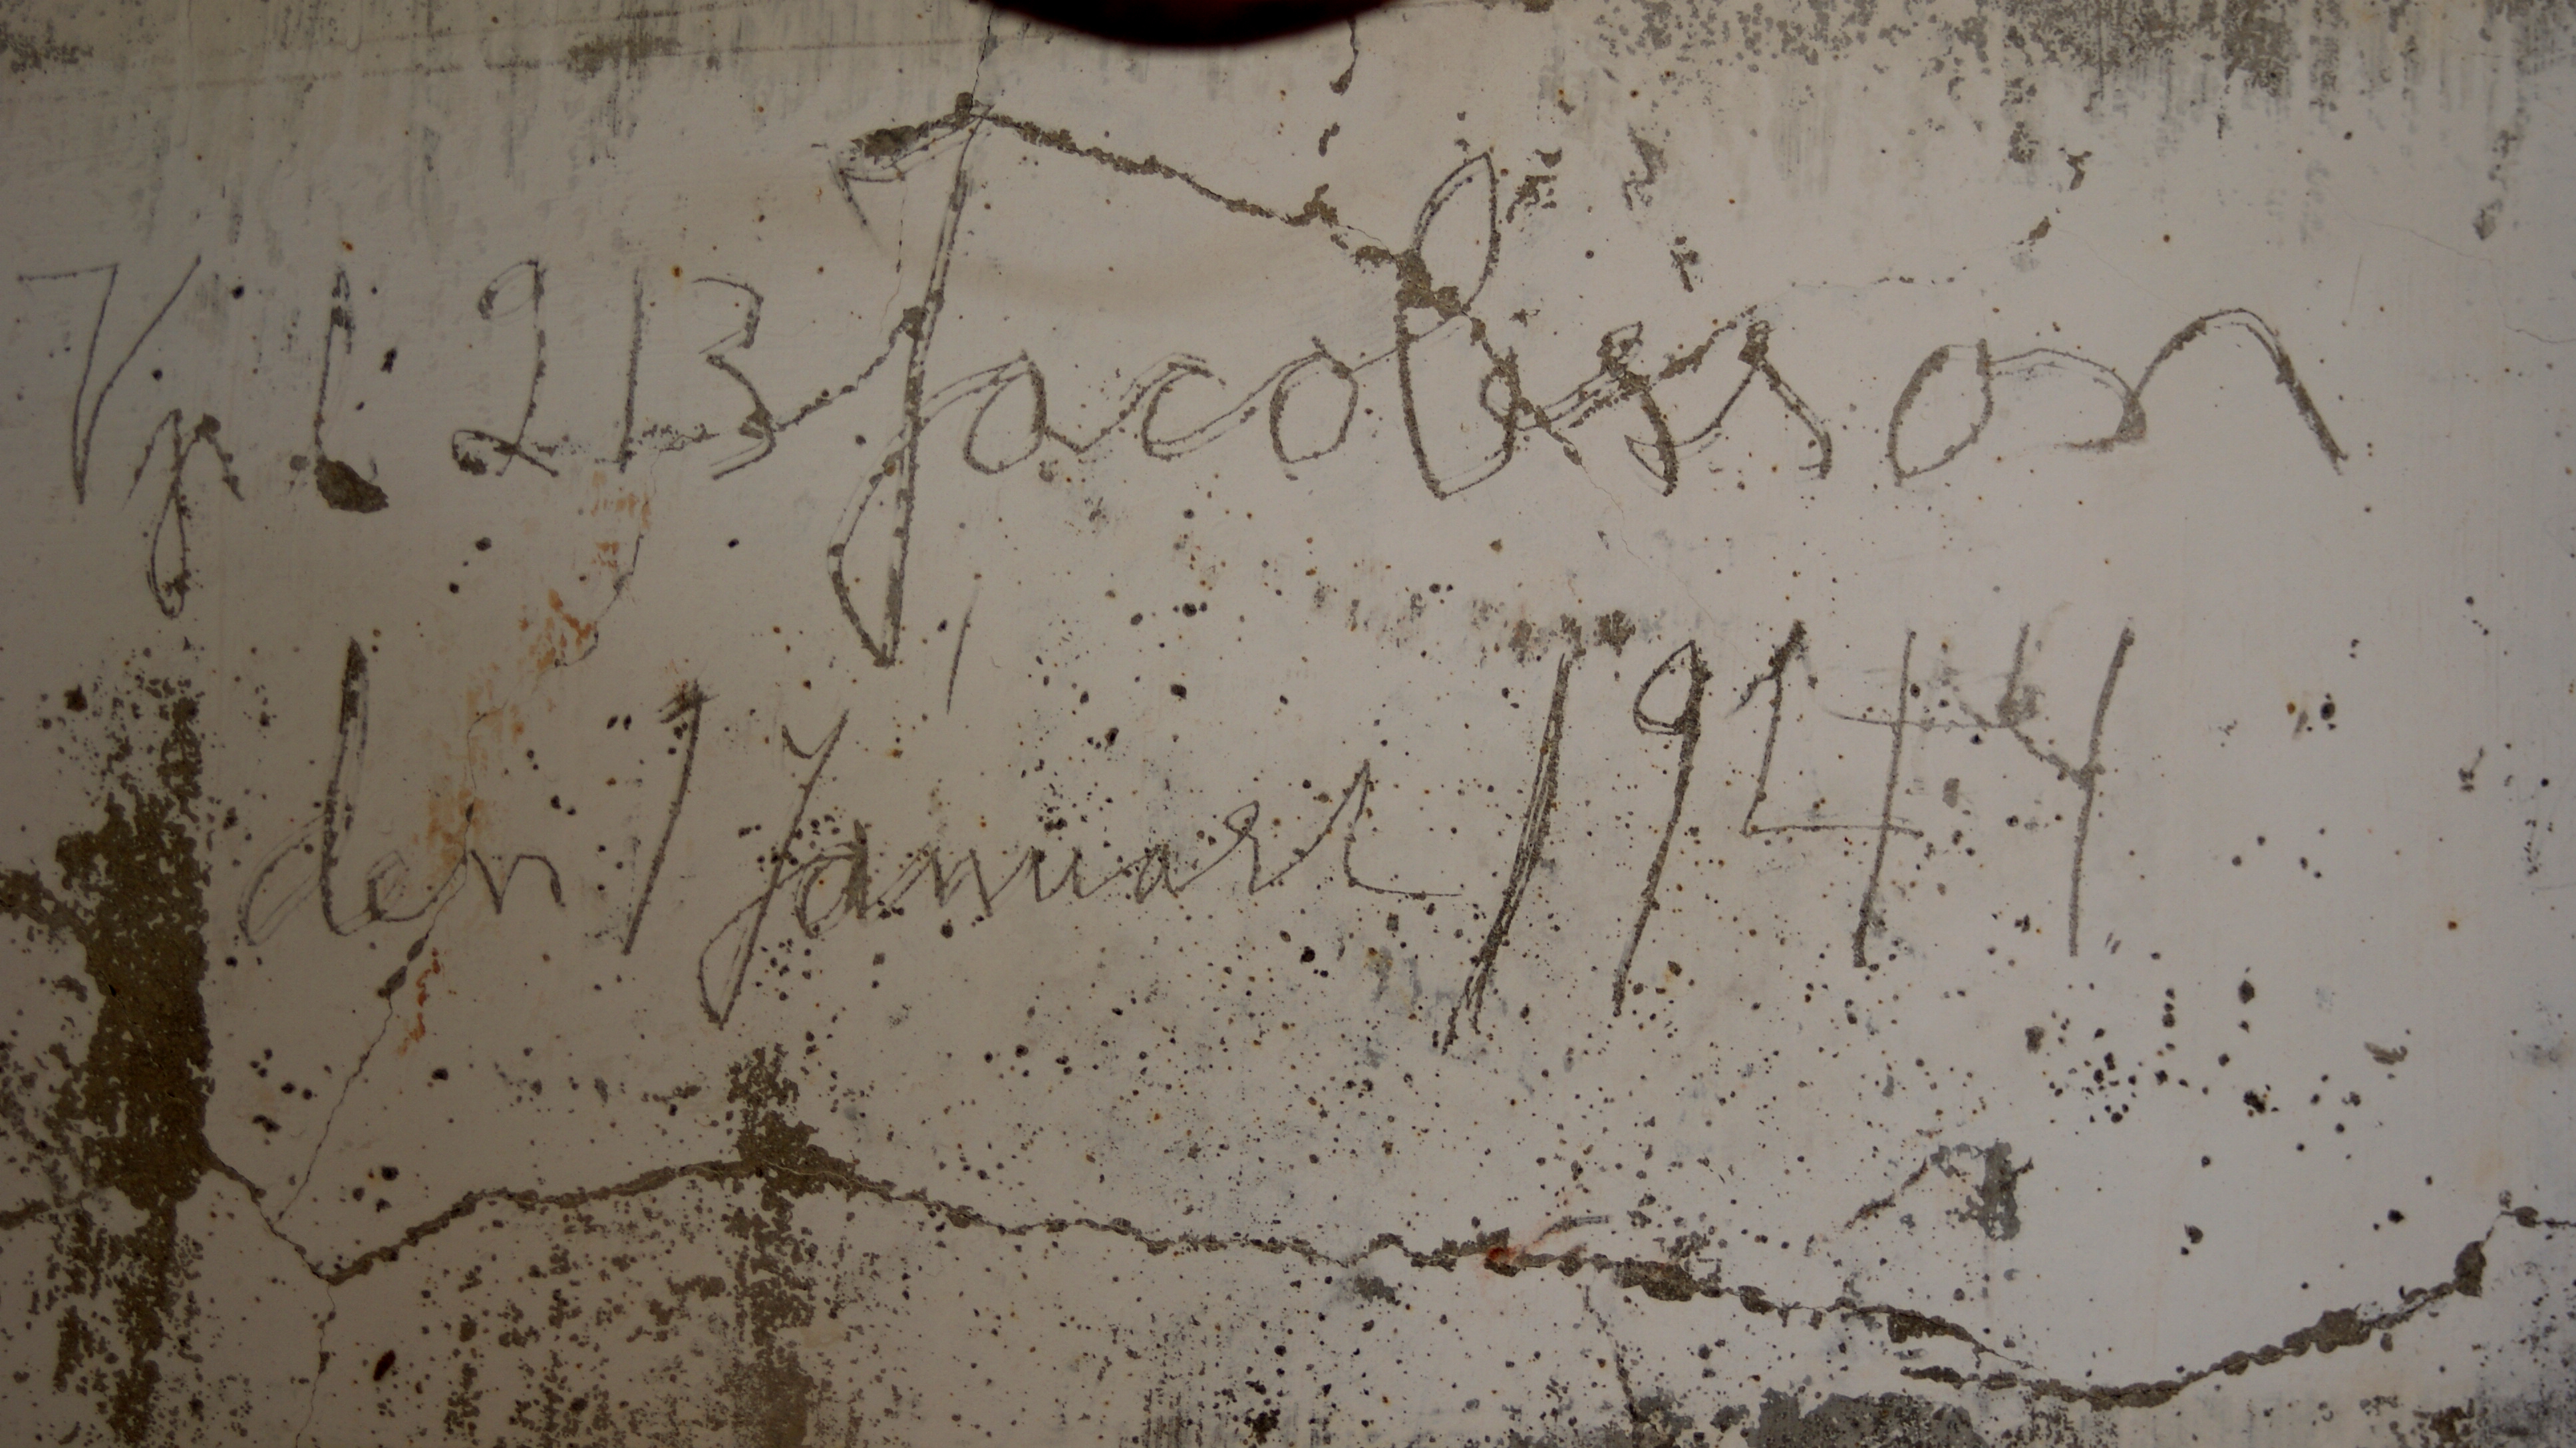 Vpl 213 Jacobsson
den 1 Januari 1944